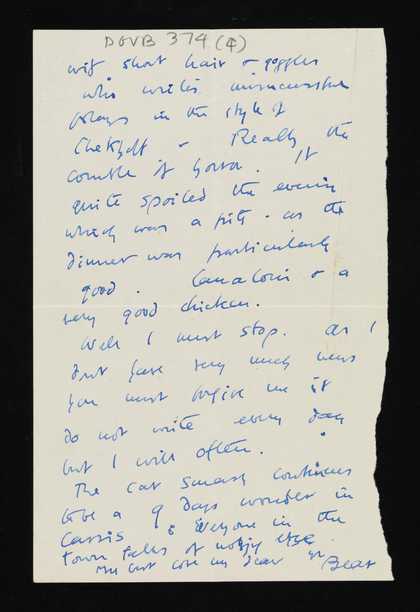 DGVB 374 (4)
wif short hair & goggles
who writes unsuccessful
plays in the style of
Chekhoff & Really the
comble of horror. It
quite spoiled the evening
which was a pity. as the
dinner was particularly
good. & a
very good chicken.
Well I must stop. as I
dont have very much news
you must forgive me if
do not write every day
but I will often.
The car smash continues
to be a 9 days wonder in
Cassis & Everyone in the
town talks of nothing else.
my dear yr Bear